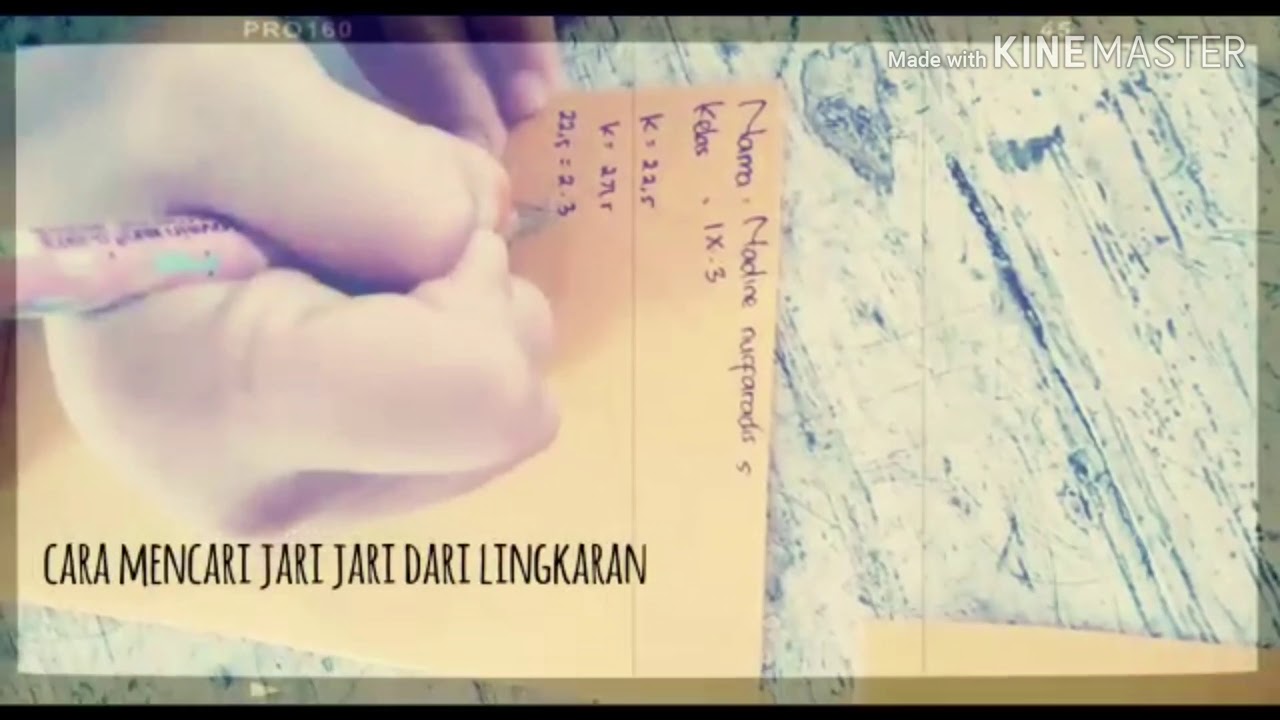 PRO160
Made with KINEMASTER
Nama : Nadine nurfaradis s
Kelas : IX.3
K = 22,5
K = 2πr
22,5 = 2.3
CARA MENCARI JARI JARI DARI LINGKARAN